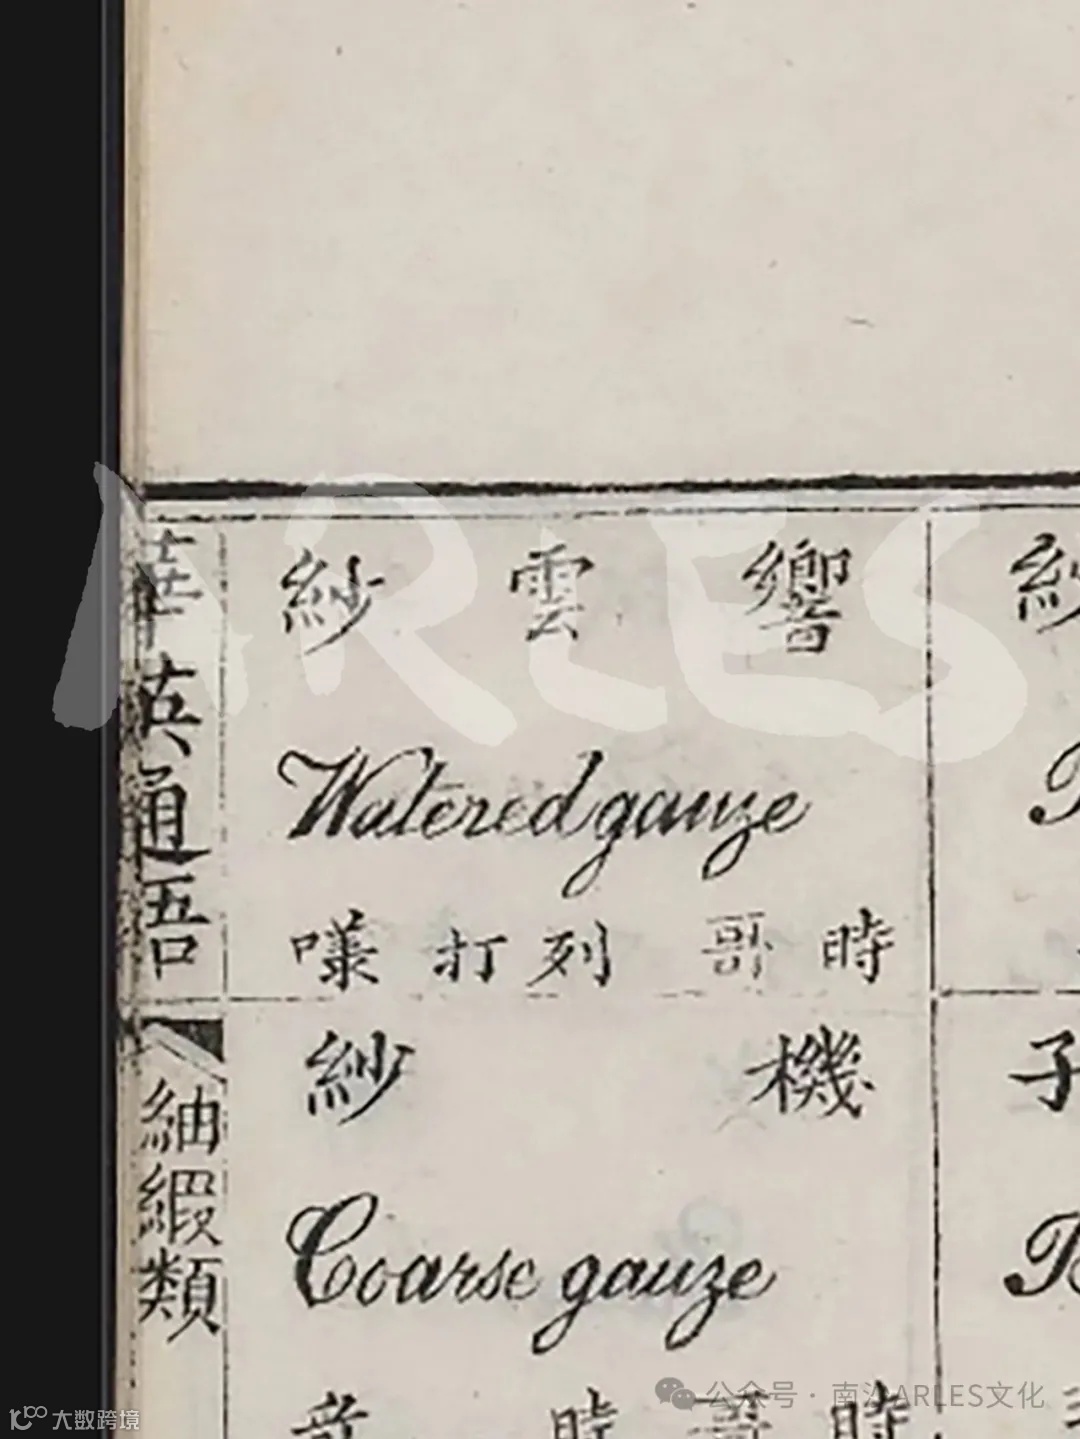 華英通語
紬緞類
響雲紗
Watered gauze
打列 哥時
機紗
Coarse gauze
紗
子
ARLES
公众号 · 南法ARLES文化
大数跨境